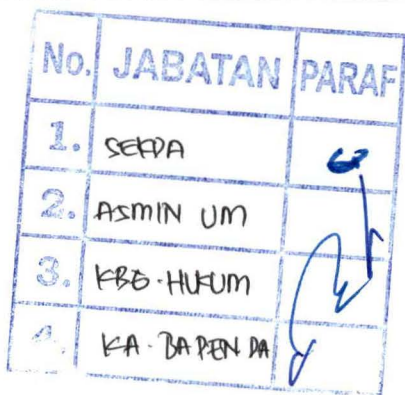 No. JABATAN PARAF
1. SEKDA
2. ASMIN UM
3. KBG-HUKUM
4. KA-BAPENDA